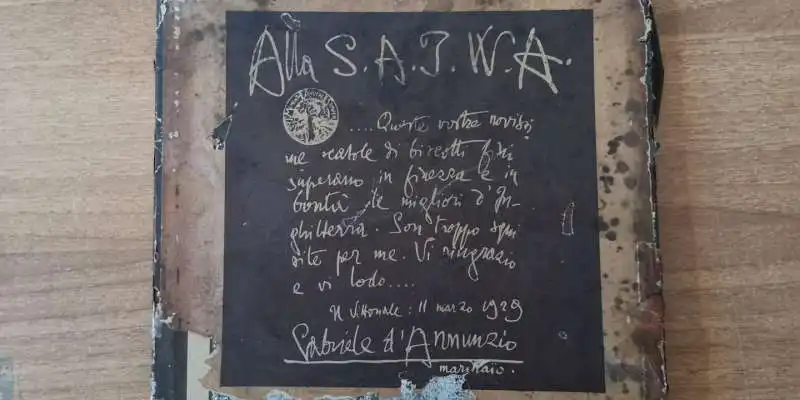 Alla S.A.I.W.A.
.... Queste vostre novissi
me scatole di biscotti fini
superano in finezza e in
bontà le migliori d'In-
ghilterra. Son troppo squi
site per me. Vi ringrazio
e vi lodo....
Il Vittoriale: 11 marzo 1929
Gabriele d'Annunzio
marinaio.